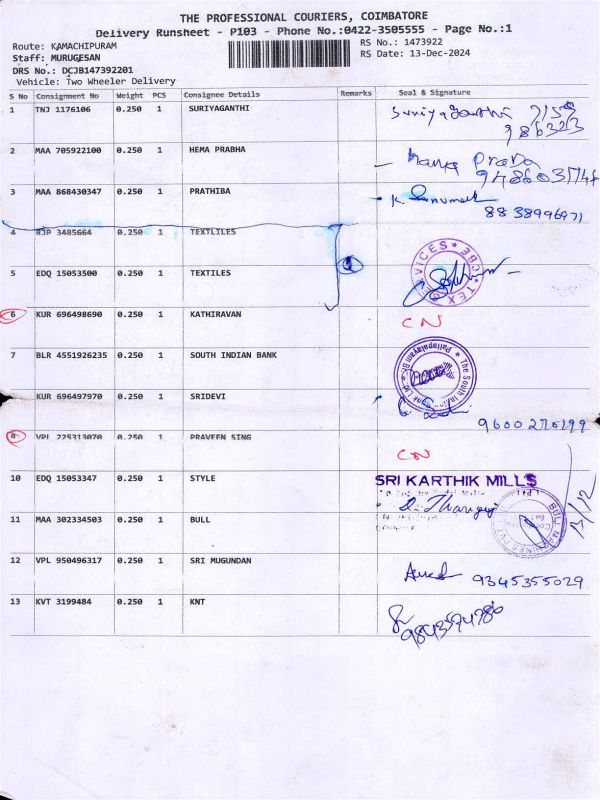 THE PROFESSIONAL COURIERS, COIMBATORE
Delivery Runsheet - P103 - Phone No.:0422-3505555 - Page No.:1
Route: KAMACHIPURAM
RS No.: 1473922
Staff: MURUGESAN
RS Date: 13-Dec-2024
DRS No.: DCJB147392201
Vehicle: Two Wheeler Delivery
S No Consignment No Weight PCS Consignee Details Remarks Seal & Signature
1 TNJ 1176106 0.250 1 SURIYAGANTHI Suriyaganthi
2 MAA 705922100 0.250 1 HEMA PRABHA
3 MAA 868430347 0.250 1 PRATHIBA
8838996971
4 RJP 3485664 0.250 1 TEXTLILES
5 EDQ 15053500 0.250 1 TEXTILES
6 KUR 696498690 0.250 1 KATHIRAVAN CN
7 BLR 4551926235 0.250 1 SOUTH INDIAN BANK
KUR 696497970 0.250 1 SRIDEVI
9 VPL 225313070 0.250 1 PRAVEEN SING CN
10 EDQ 15053347 0.250 1 STYLE SRI KARTHIK MILLS
11 MAA 302334503 0.250 1 BULL
12 VPL 950496317 0.250 1 SRI MUGUNDAN 9345355029
13 KVT 3199484 0.250 1 KNT